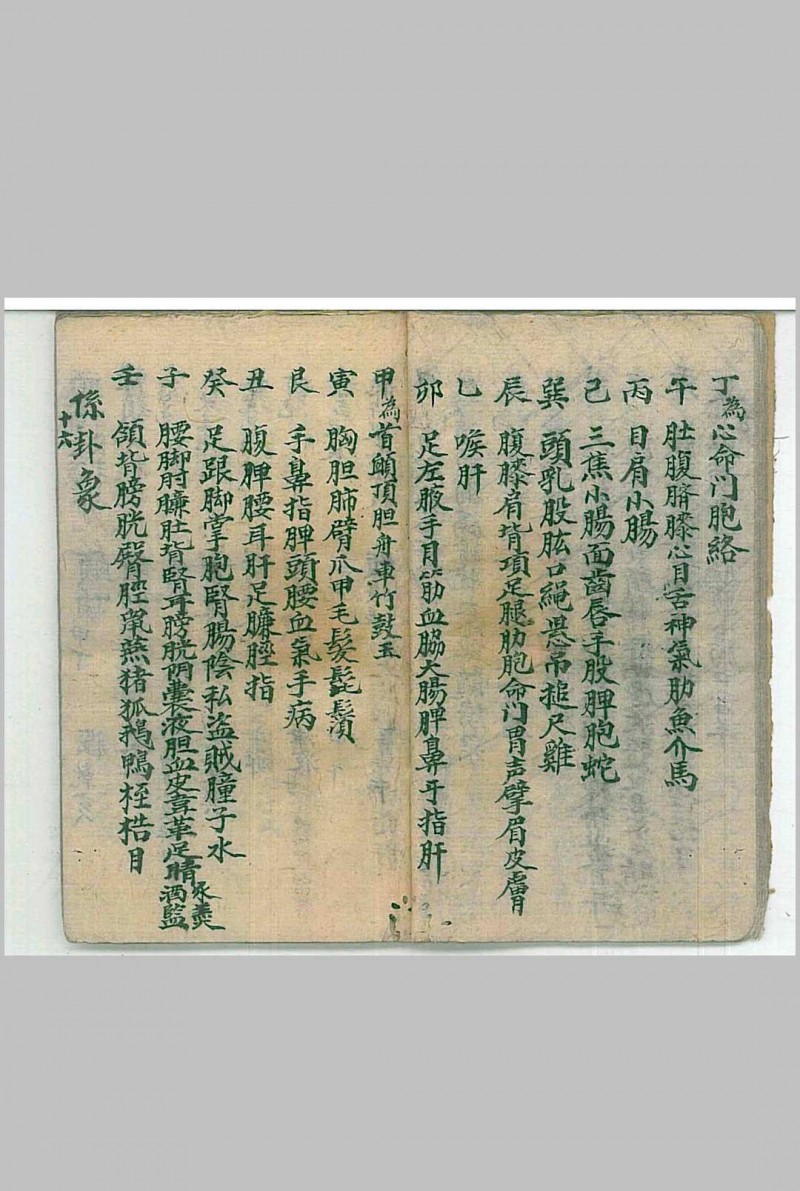 丁為心命門胞絡
午 肚腹臍膝心目舌神氣肋魚介馬
丙 目肩小腸
巳 三焦小腸面齒唇手股脾胞蛇
巽 頭乳股肱口繩悬吊搥尺雞
辰 腹膝肩背項足腿肋胞命门胃声臂眉皮膚
乙 喉肝
卯 足左腋手目筋血脇大腸脾鼻牙指肝
甲為首顱頂胆舟車竹鼓玉
寅 胸胆肺臂爪甲毛髮髭鬚
艮 手鼻指脾頭腰血氣手病
丑 腹脾腰耳肝足臁脛指
癸 足跟脚掌胞腎腸陰私盜賊瞳子水
子 腰脚肘臁肚背腎耳膀胱阴囊液胆血皮韋革足睛
酒監
壬 頷背膀胱臀脛鼠燕猪狐鵝鴨桎梏目
係卦象
十六